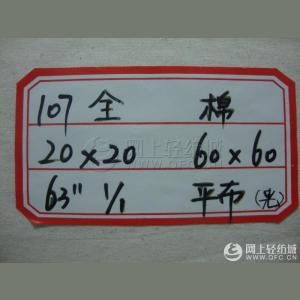 107 全 棉
20×20 60×60
63" 1/1 平布(光)
网上轻纺城
网上轻纺城
WWW.QFC.CN